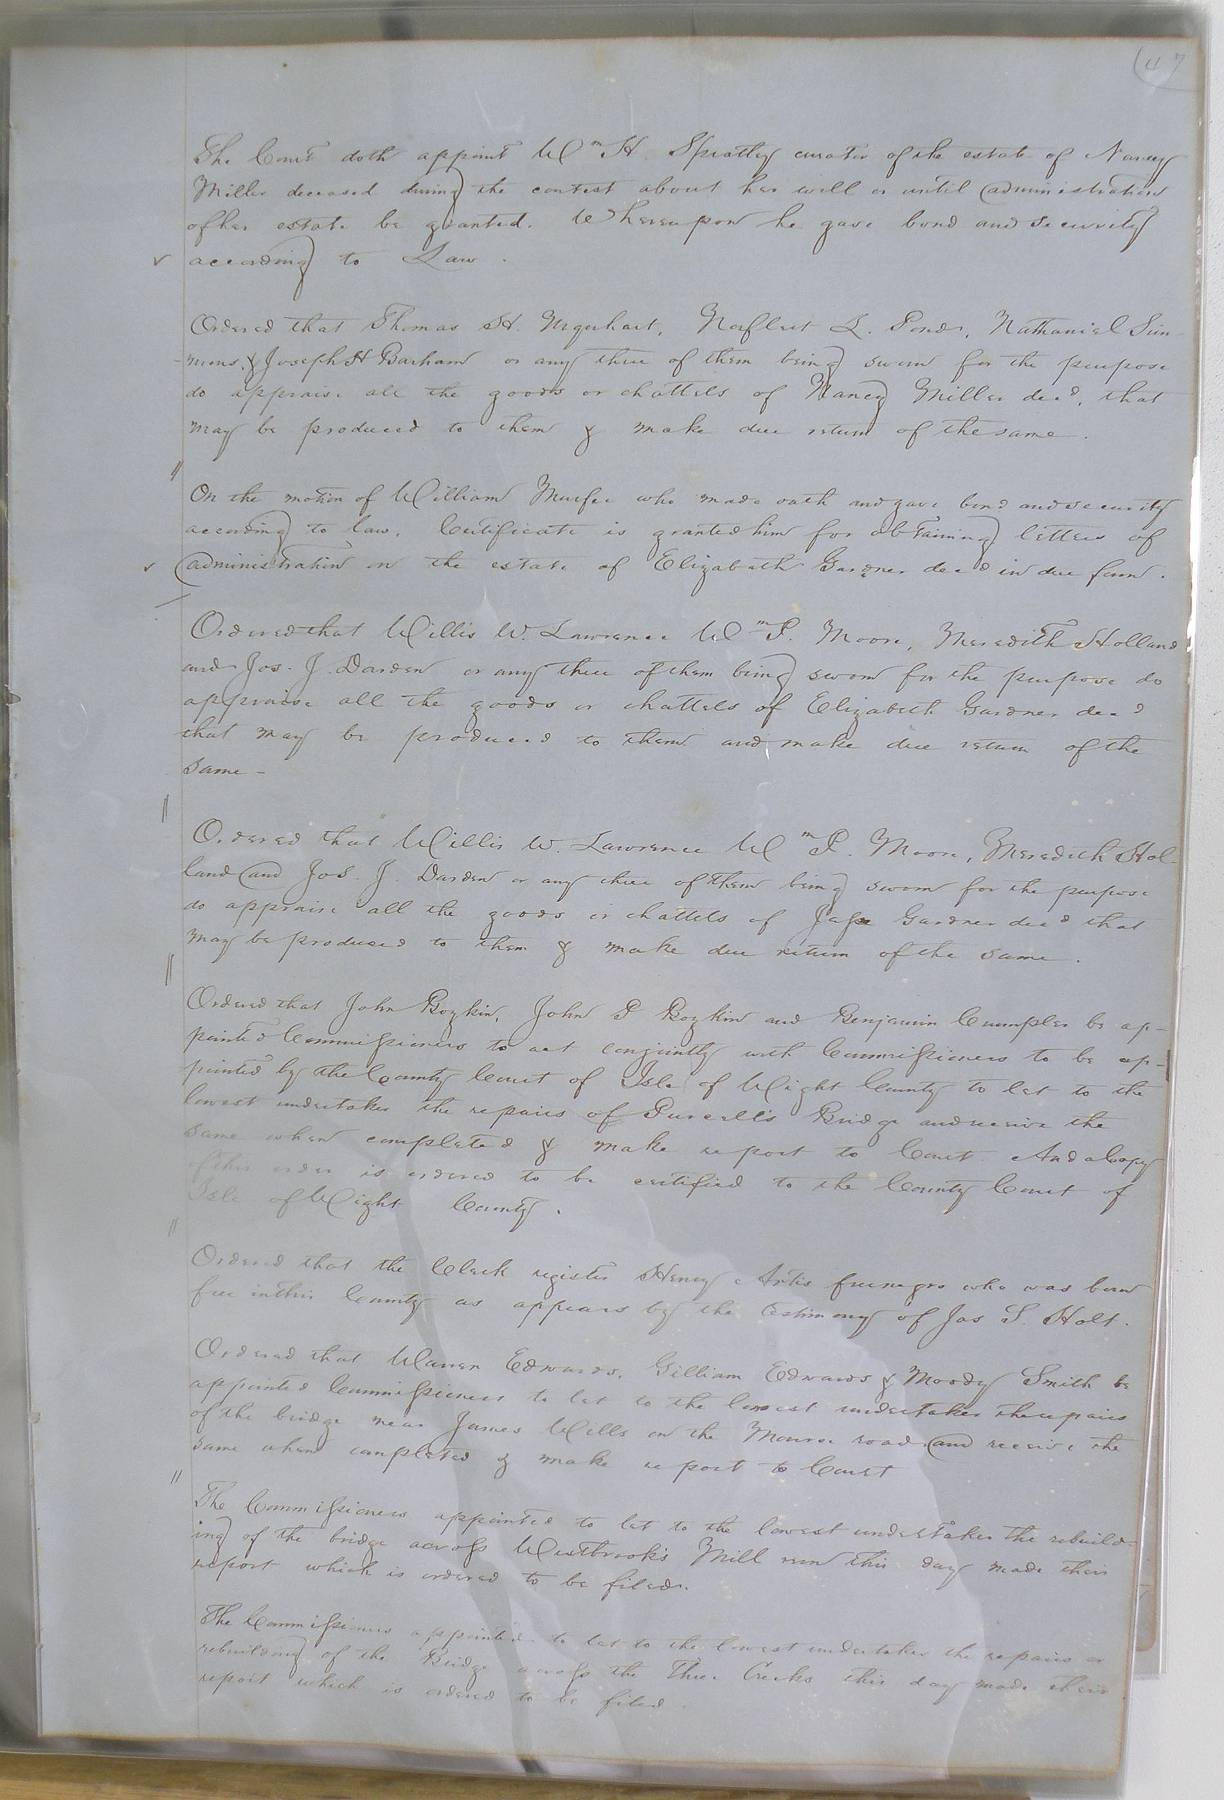 47
The Court doth appoint Wm H Spratley curator of the estate of Nancy
Miller deceased during the contest about her will or until administration
of her estate be granted. Whereupon he gave bond and security
according to Law.
Ordered that Thomas H. Urquhart, Norfleet L. Pond, Nathaniel Sim-
mons, & Joseph H Barham or any three of them being sworn for the purpose
do appraise all the goods or chattels of Nancy Miller decd, that
may be produced to them & make due return of the same.
On the motion of William Murfee who made oath and gave bond and security
according to law, Certificate is granted him for obtaining letters of
administration on the estate of Elizabeth Gardner decd in due form.
Ordered that Willis W. Lawrence Wm P. Moore, Meredith Holland
and Jos. J. Darden or any three of them being sworn for the purpose do
appraise all the goods or chattels of Elizabeth Gardner decd
that may be produced to them and make due return of the
same -
Ordered that Willis W. Lawrence Wm P. Moore, Meredith Hol-
land and Jos. J. Darden or any three of them being sworn for the purpose
do appraise all the goods or chattels of Gardner decd that
may be produced to them & make due return of the same.
Ordered that John Boykin, John P Boykin and Benjamin Crumpler be ap-
pointed Commissioners to act conjointly with Commissioners to be ap-
pointed by the County Court of Isle of Wight County to let to the
lowest undertaker the repairs of Purcell's Bridge and receive the
same when completed & make report to Court. And a Copy
of this order is ordered to be certified to the County Court of
Isle of Wight County.
Ordered that the Clerk register Henry Artis free negro who was born
free in this County as appears by the testimony of Jas S. Holt.
Ordered that Warren Edwards, Gilliam Edwards & Moody Smith be
appointed Commissioners to let to the lowest undertaker the repairs
of the bridge near James Wills on the Monroe road and receive the
same when completed & make report to Court
The Commissioners appointed to let to the lowest undertaker the rebuild-
ing of the bridge across Westbrook's Mill run this day made their
report which is ordered to be filed.
The Commissioners appointed to let to the lowest undertaker the repairs or
rebuilding of the Bridge across the Three Creeks this day made their
report which is ordered to be filed.